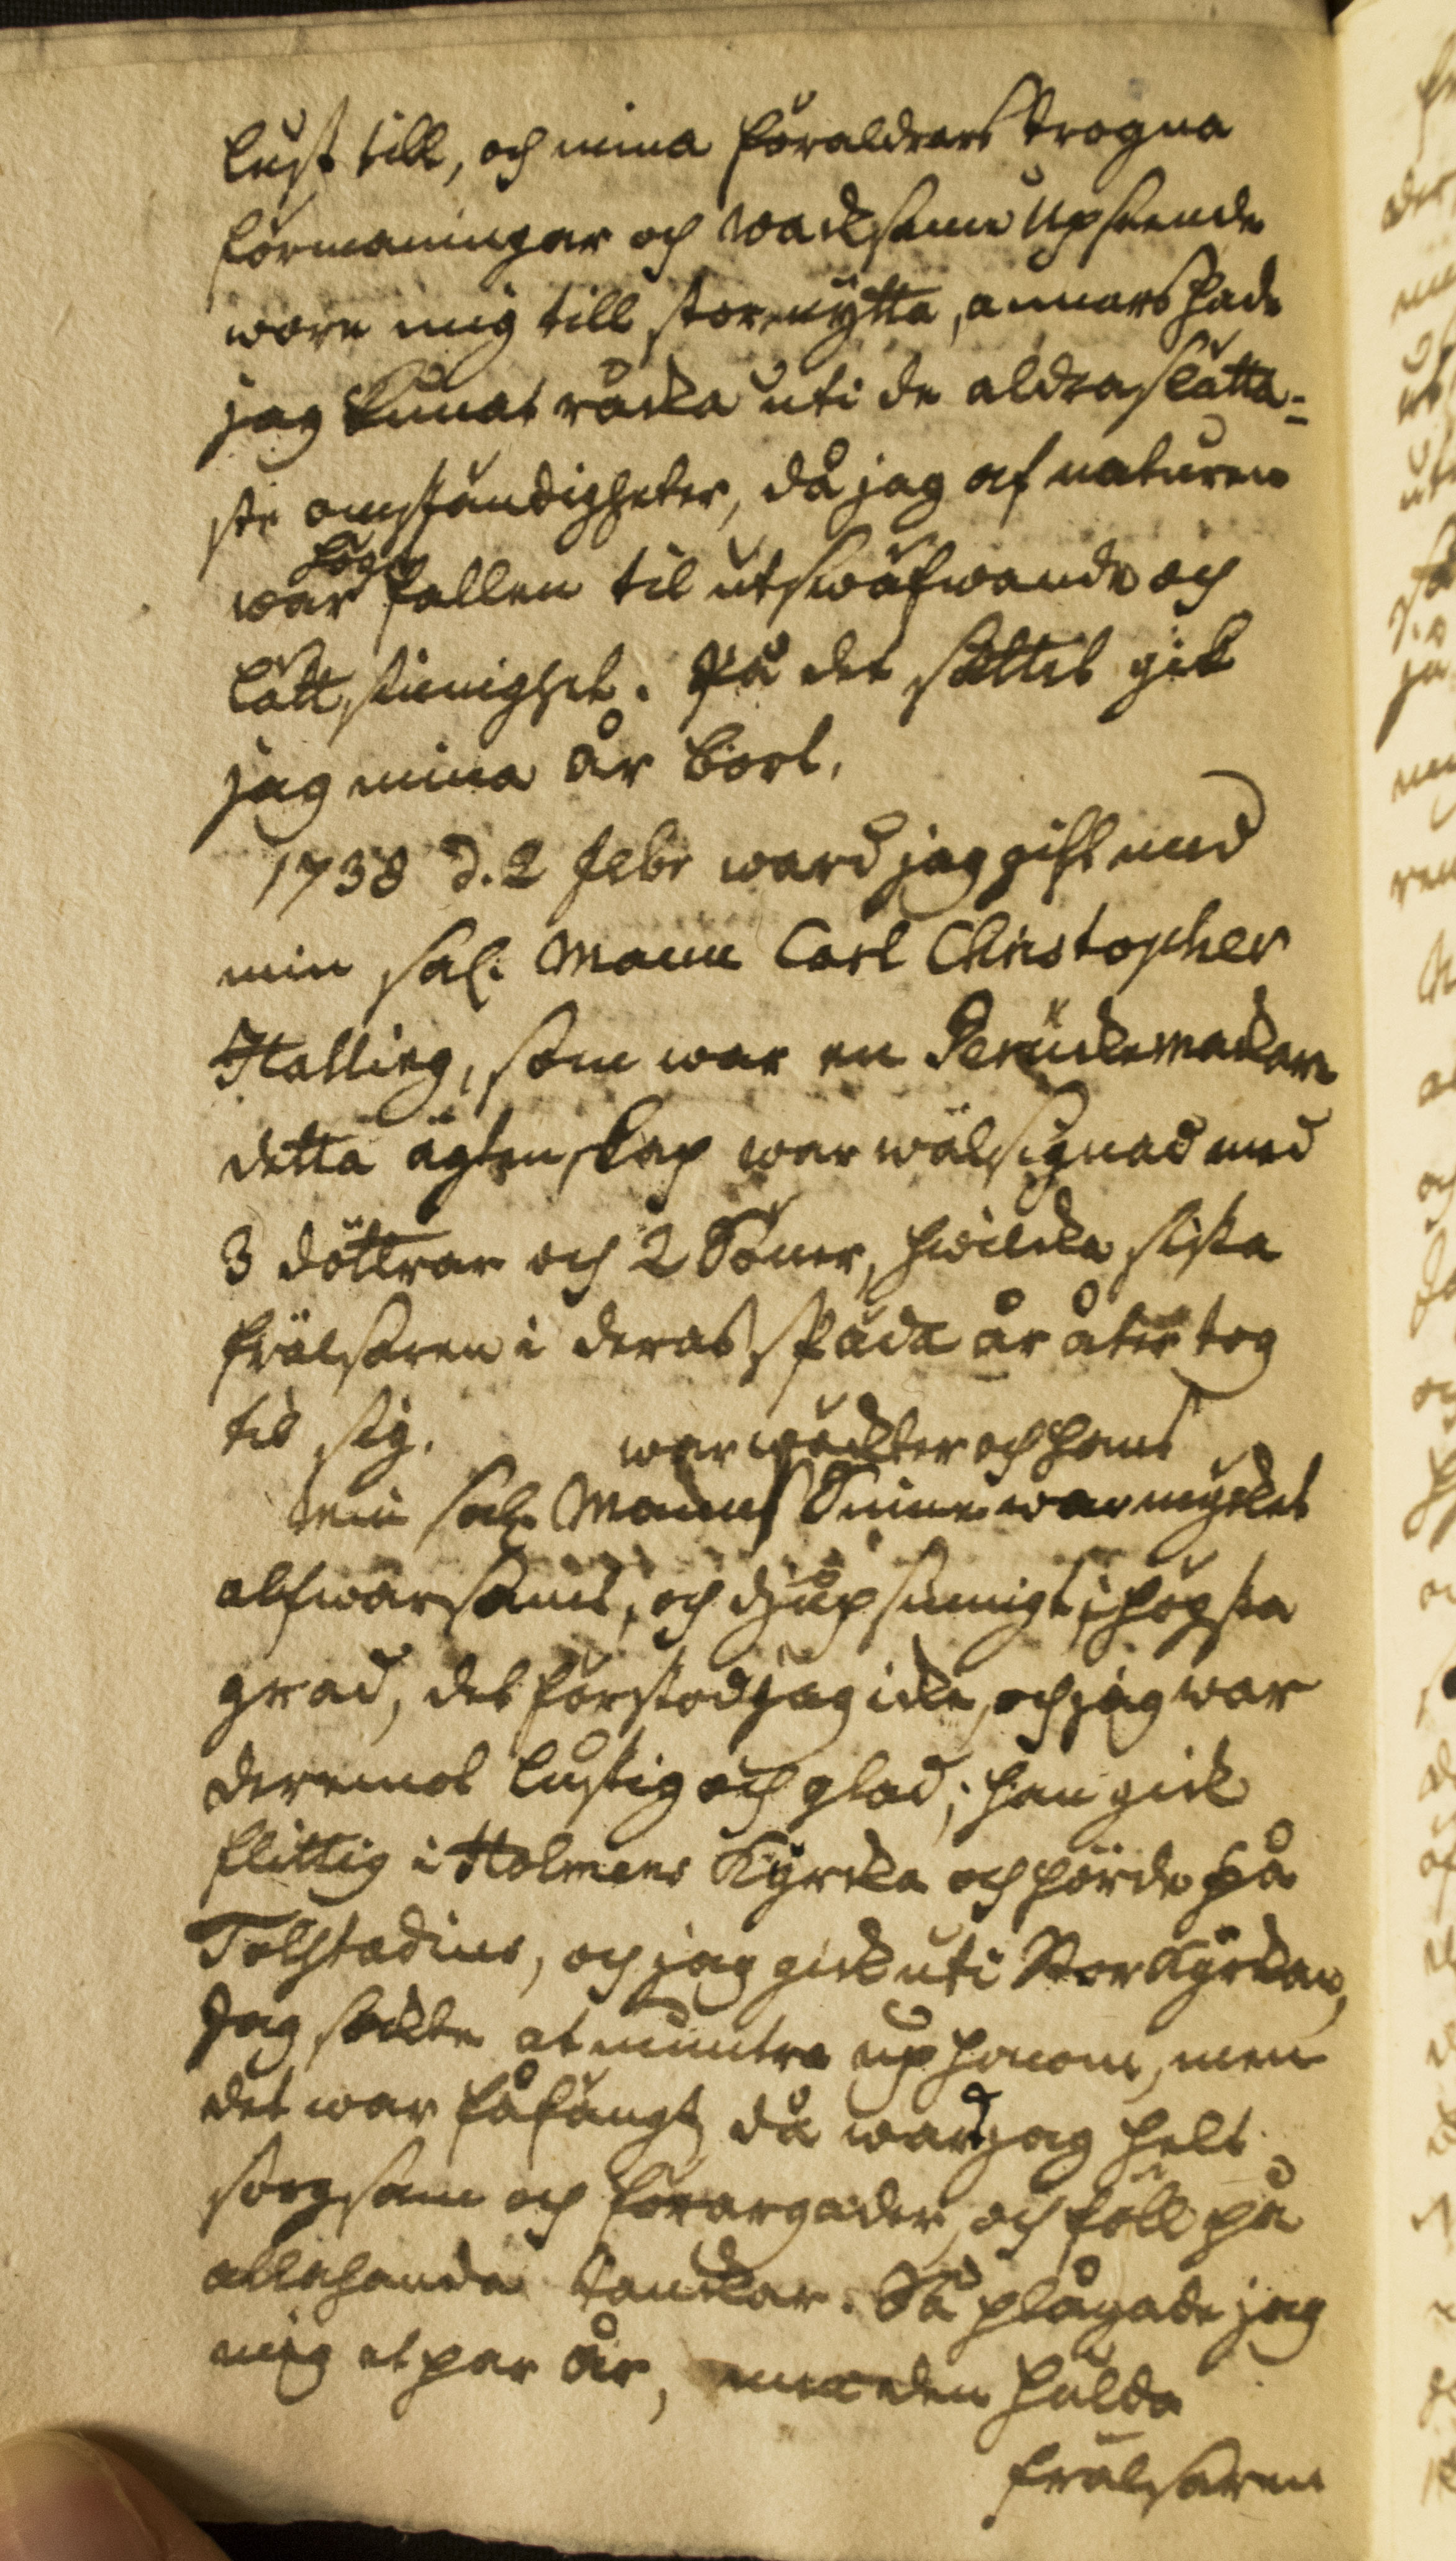 lust till, och mina föräldrars trogna
förmaningar och wacksamme upseende
wore mig till stor nytta, annars hade
jag kunnat råcka uti de aldra slätta-
ste omständigheter, då jag af naturen
war hog fallen til utswäfwande och
lättsinnighet. På det sättet gik
jag mina år bort.
1738 d. 2 Febr ward jag gift med
min sal. Mann Carl Christopher
Halling, som war en Perückemackare
detta ägtenskap war wälsignad med
3 döttrar och 2 Söner, hwilcka sista
frälsaren i deras späda år åter tog
til sig.
war wäckter och hans
Min sal. Mann Sinne war mycket
alfwarsamt, och djupsinnigt i högsta
grad, det förstod jag icke, och jag war
deremot lustig och glad; han gick
flittig i Holmens Kyrcka och hörde på
Tolstadius, och jag gick uti StorKyrckan,
Jag sökte at muntra up honom, men
det war fåfängt då ward jag helt
sorgsam och förargader, och föll på
allehanda tanckar. Så plågade jag
mig et par år, men den hulda
frälsaren